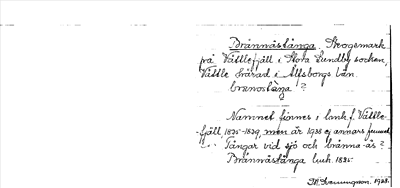 Brännästånga. Skogsmark
på Vättlefjäll i Stora Lundby socken,
Vättle härad i Älfsborgs län.
Namnet finnes i lmk. f. Vättle-
-fjäll 1825-1829, men är 1928 ej annars
Tångar vid sjö och bränna-ås?
Brännästånga lmk. 1825
1928.